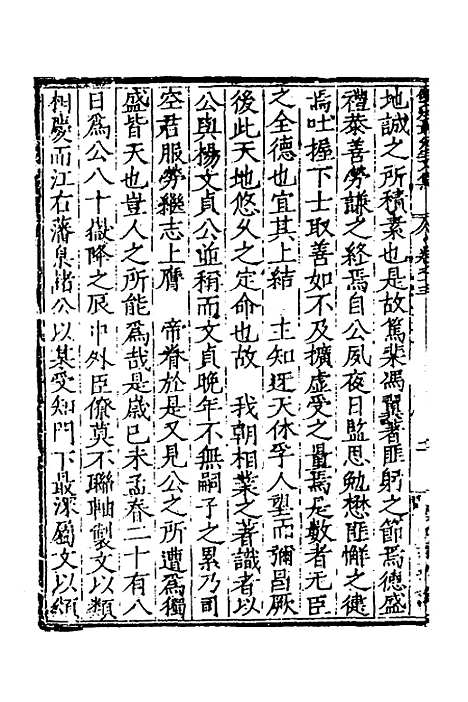 地誠之所積素也是故篤棐馮翼著匪躬之節焉德盛
禮恭善勞謙之終焉自公夙夜日監思勉懋匪懈之健
焉吐握下士取善如不及擴虛受之量焉是數者无臣
之全德也宜其上結　主知迓天休孚人望而彌昌厥
後此天地悠久之定命也故　我朝相業之著識者以
公與楊文貞公並稱而文貞晚年不無嗣子之累乃司
空君服勞繼志上膺　帝眷於是又見公之所遭為獨
盛皆天也豈人之所能為哉是歲已未孟春二十有八
日為公八十嶽降之辰中外臣僚莫不聯軸製文以類
相慶而江右藩臬諸公以某受知門下最深屬文以頌